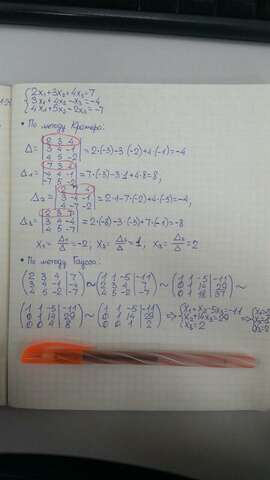 {2x₁+3x₂+4x₃=7
{3x₁+4x₂-x₃=-4
{4x₁+5x₂-2x₃=-7
• По методу Крамера:
Δ = |2 3 4; 3 4 -1; 4 5 -2| = 2·(-3)-3·(-2)+4·(-1)=-4
Δ₁ = |7 3 4; -4 4 -1; -7 5 -2| = 7·(-3)-3·1+4·8=8,
Δ₂ = |2 7 4; 3 -4 -1; 4 -7 -2| = 2·1-7·(-2)+4·(-5)=-4,
Δ₃ = |2 3 7; 3 4 -4; 4 5 -7| = 2·(-8)-3·(-5)+7·(-1)=-8
x₁ = Δ₁/Δ = -2, x₂ = Δ₂/Δ = 1, x₃ = Δ₃/Δ = 2
• По методу Гаусса:
(2 3 4 | 7; 3 4 -1 | -4; 4 5 -2 | -7) ~ (1 1 -5 | -11; 2 3 4 | 7; 4 5 -2 | -7) ~ (1 1 -5 | -11; 0 1 14 | 29; 0 1 18 | 37) ~
(1 1 -5 | -11; 0 1 14 | 29; 0 0 4 | 8) ~ (1 1 -5 | -11; 0 1 14 | 29; 0 0 1 | 2) ⇒ {x₁+x₂-5x₃=-11
{x₂+14x₃=29
{x₃=2